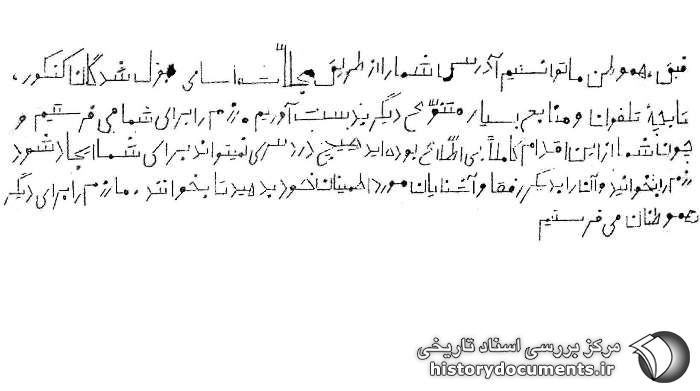 رفیق، هموطن ما توانستیم آدرس شما را از طریق مجلات، اسامی قبول شدگان کنکور،
تابچهٔ تلفونان و منابع بسیار متنوع دیگر بدست آوریم. رزم را برای شما می فرستیم و
چون شما از این اقدام کاملاً بی اطلاع بوده اید هیچ دردسری نمیتواند برای شما ایجاد شود
رزم را بخوانید و آنرا بدیگر رفقا و آشنایان مورد اطمینان خود بدهید تا بخوانند. ما رزم را برای دیگر
هموطنان می فرستیم
مرکز بررسی اسناد تاریخی
historydocuments.ir